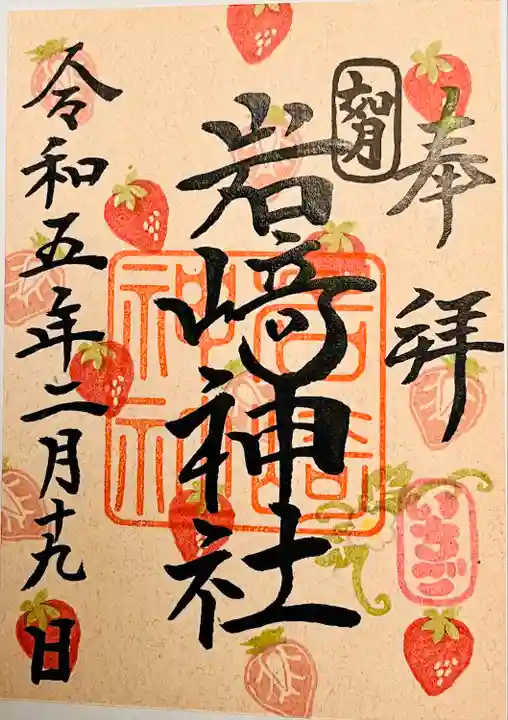 奉拝
如月
いちご
岩﨑神社
岩崎神社
令和五年二月十九日